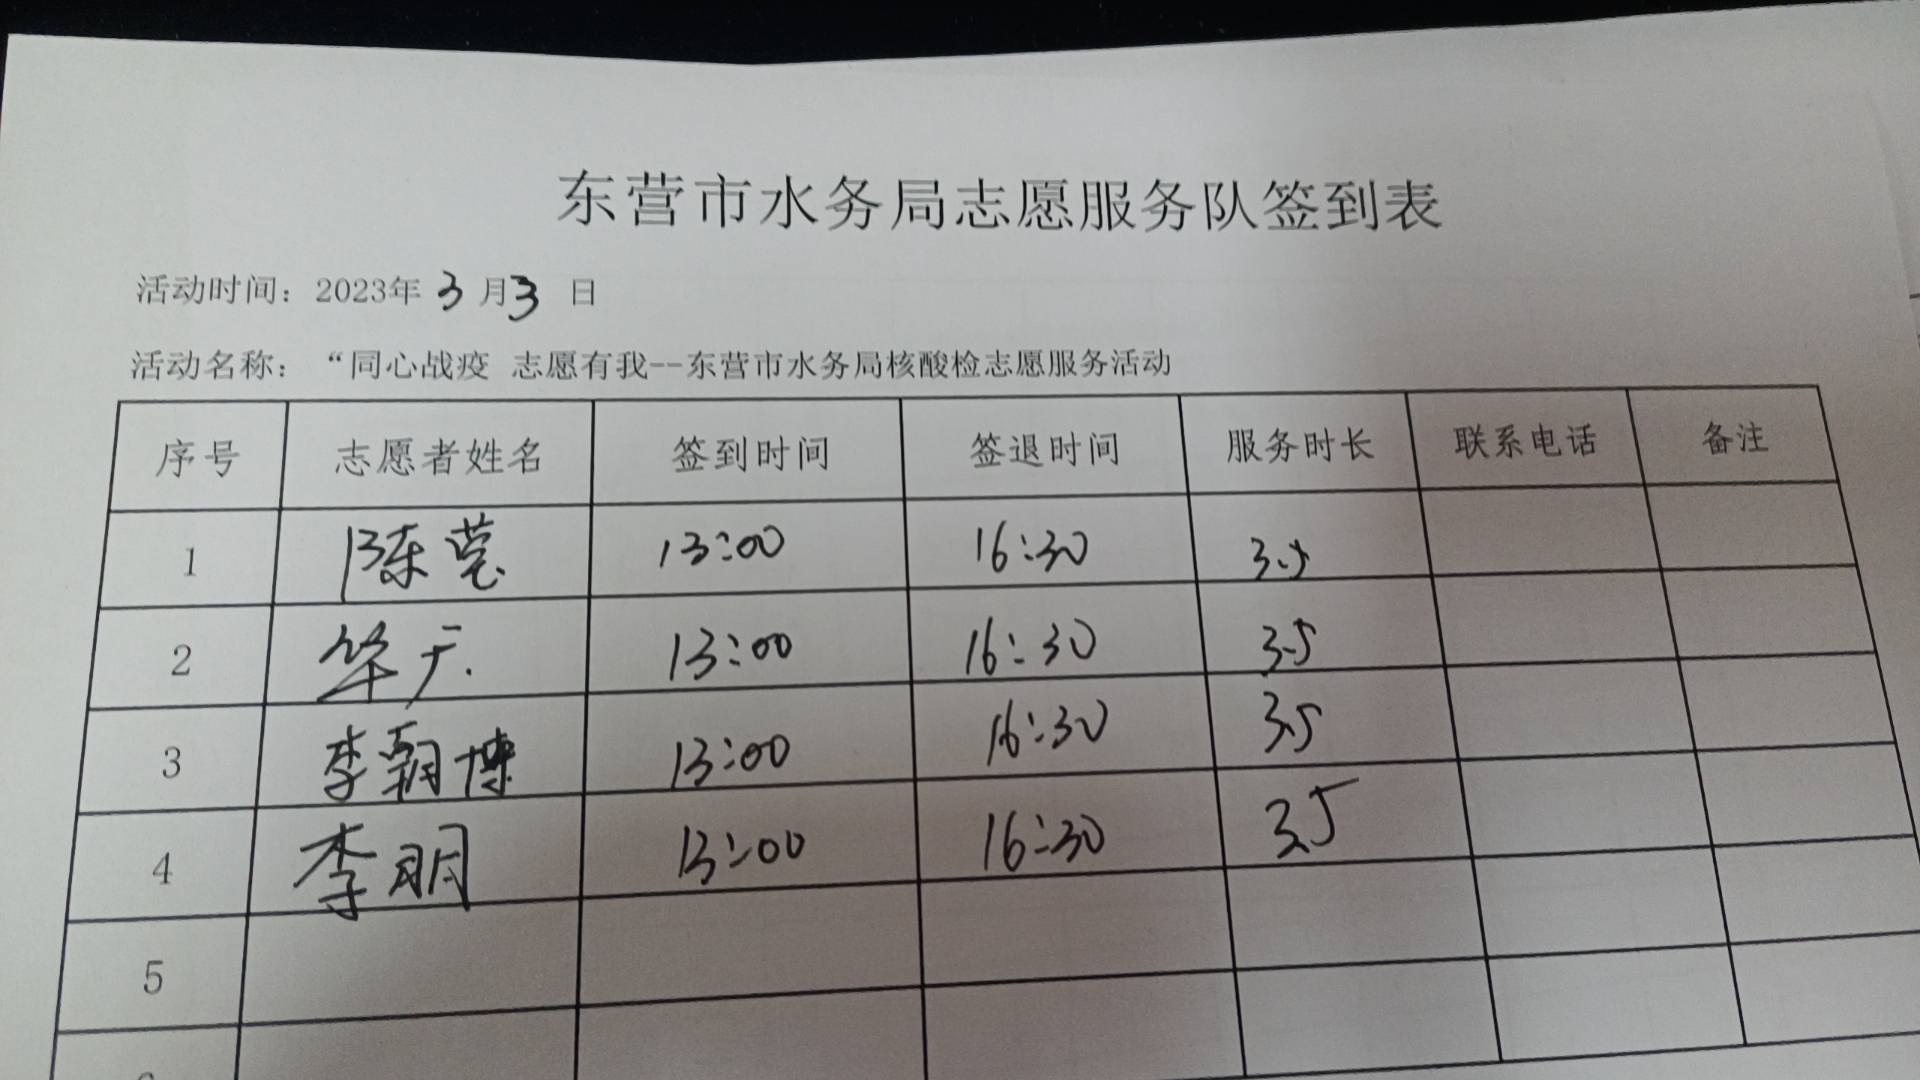 东营市水务局志愿服务队签到表
活动时间：2023年 3 月 3 日
活动名称：“同心战疫 志愿有我--东营市水务局核酸检志愿服务活动
序号 志愿者姓名 签到时间 签退时间 服务时长 联系电话 备注
1 陈莹 13:00 16:30 3.5
2 13:00 16:30 3.5
3 李朝博 13:00 16:30 3.5
4 李明 13:00 16:30 3.5
5